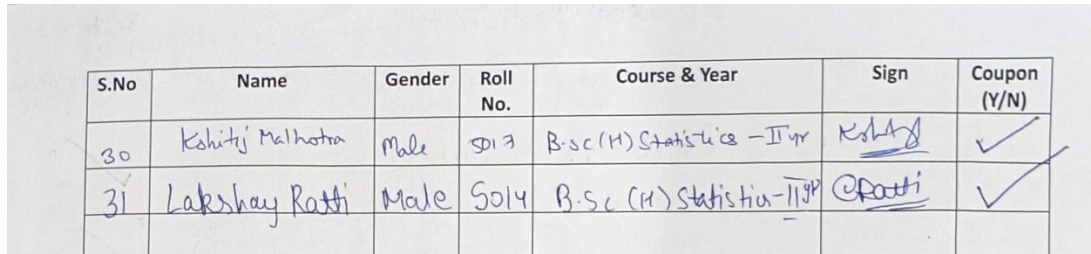 S.No Name Gender Roll No. Course & Year Sign Coupon (Y/N)
30 Kshitij Malhotra Male 5017 B.Sc (H) Statistics - II yr Kshitij
31 Lakshay Ratti Male 5014 B.Sc (H) Statistics - II yr Ratti